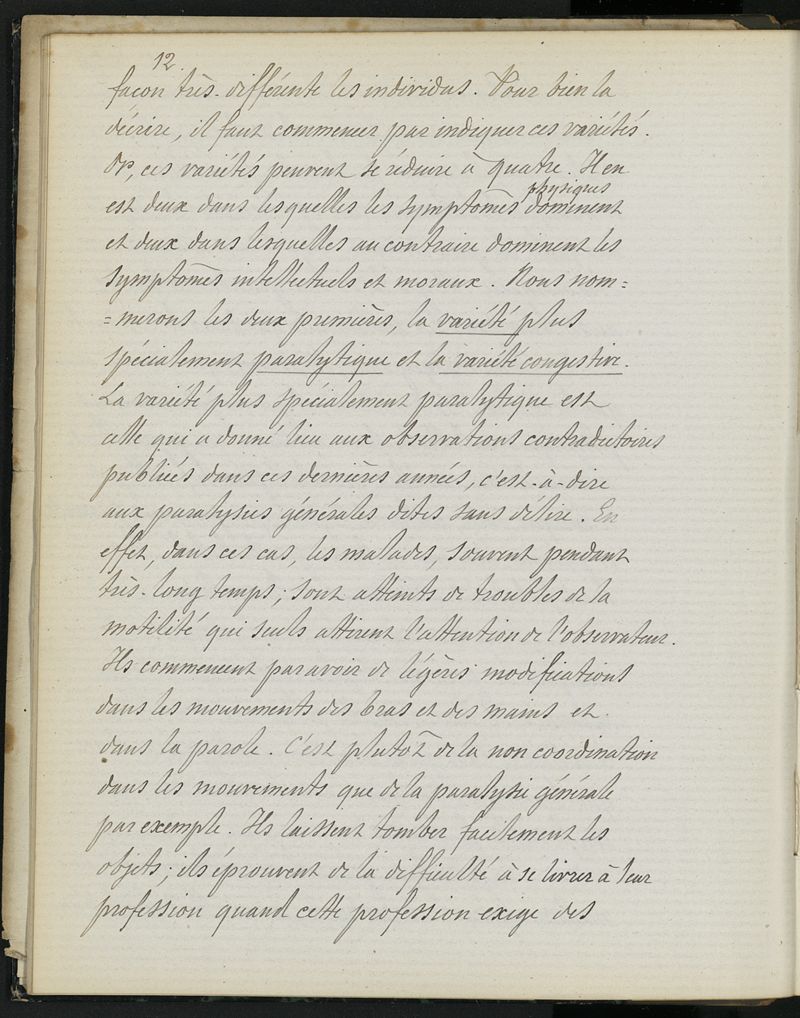 12.
façon très-différente les individus. Pour bien la
décrire, il faut commencer par indiquer ces variétés.
Or, ces variétés peuvent se réduire à quatre. Il en
physiques
est deux dans lesquelles les symptômes dominent
et deux dans lesquelles au contraire dominent les
symptômes intellectuels et moraux. Nous nom=
=merons les deux premières, la variété plus
spécialement paralytique et la variété congestive.
La variété plus spécialement paralytique est
celle qui a donné lieu aux observations contradictoires
publiées dans ces dernières années, c'est-à-dire
aux paralysies générales dites sans délire. En
effet, dans ces cas, les malades, souvent pendant
très-long temps; sont atteints de troubles de la
motilité qui seuls attirent l'attention de l'observateur.
Ils commencent par avoir de légères modifications
dans les mouvements des bras et des mains et
dans la parole. C'est plutôt de la non coordination
dans les mouvements que de la paralysie générale
par exemple. Ils laissent tomber facilement les
objets; ils éprouvent de la difficulté à se livrer à leur
profession quand cette profession exige des